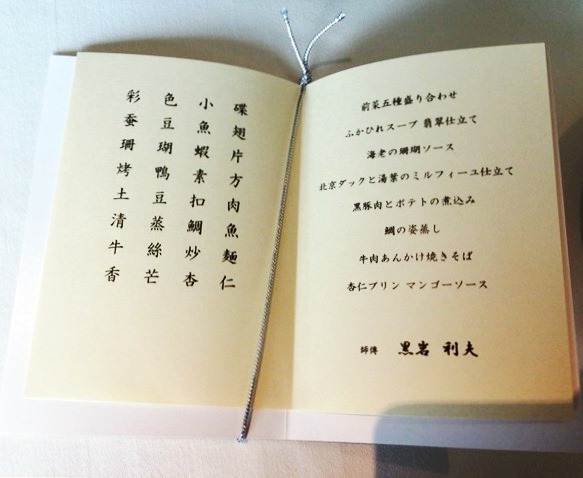 彩色小碟
蚕豆魚翅
珊瑚蝦片
烤鴨素方
土豆扣肉
清蒸鯛魚
牛絲炒麵
香芒杏仁
前菜五種盛り合わせ
ふかひれスープ 翡翠仕立て
海老の珊瑚ソース
北京ダックと湯葉のミルフィーユ仕立て
黒豚肉とポテトの煮込み
鯛の姿蒸し
牛肉あんかけ焼きそば
杏仁プリン マンゴーソース
師傅 黒岩 利夫